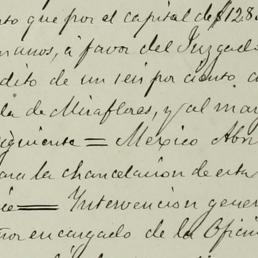 to que por el capital de $128
manos, á favor del Juzgad
dito de un seis por ciento a
da de Miraflores, y al mar
siguiente = Mexico Abri
ara la chancelacion de esta
= Intervencion gener
ñor encargado de la Ofici